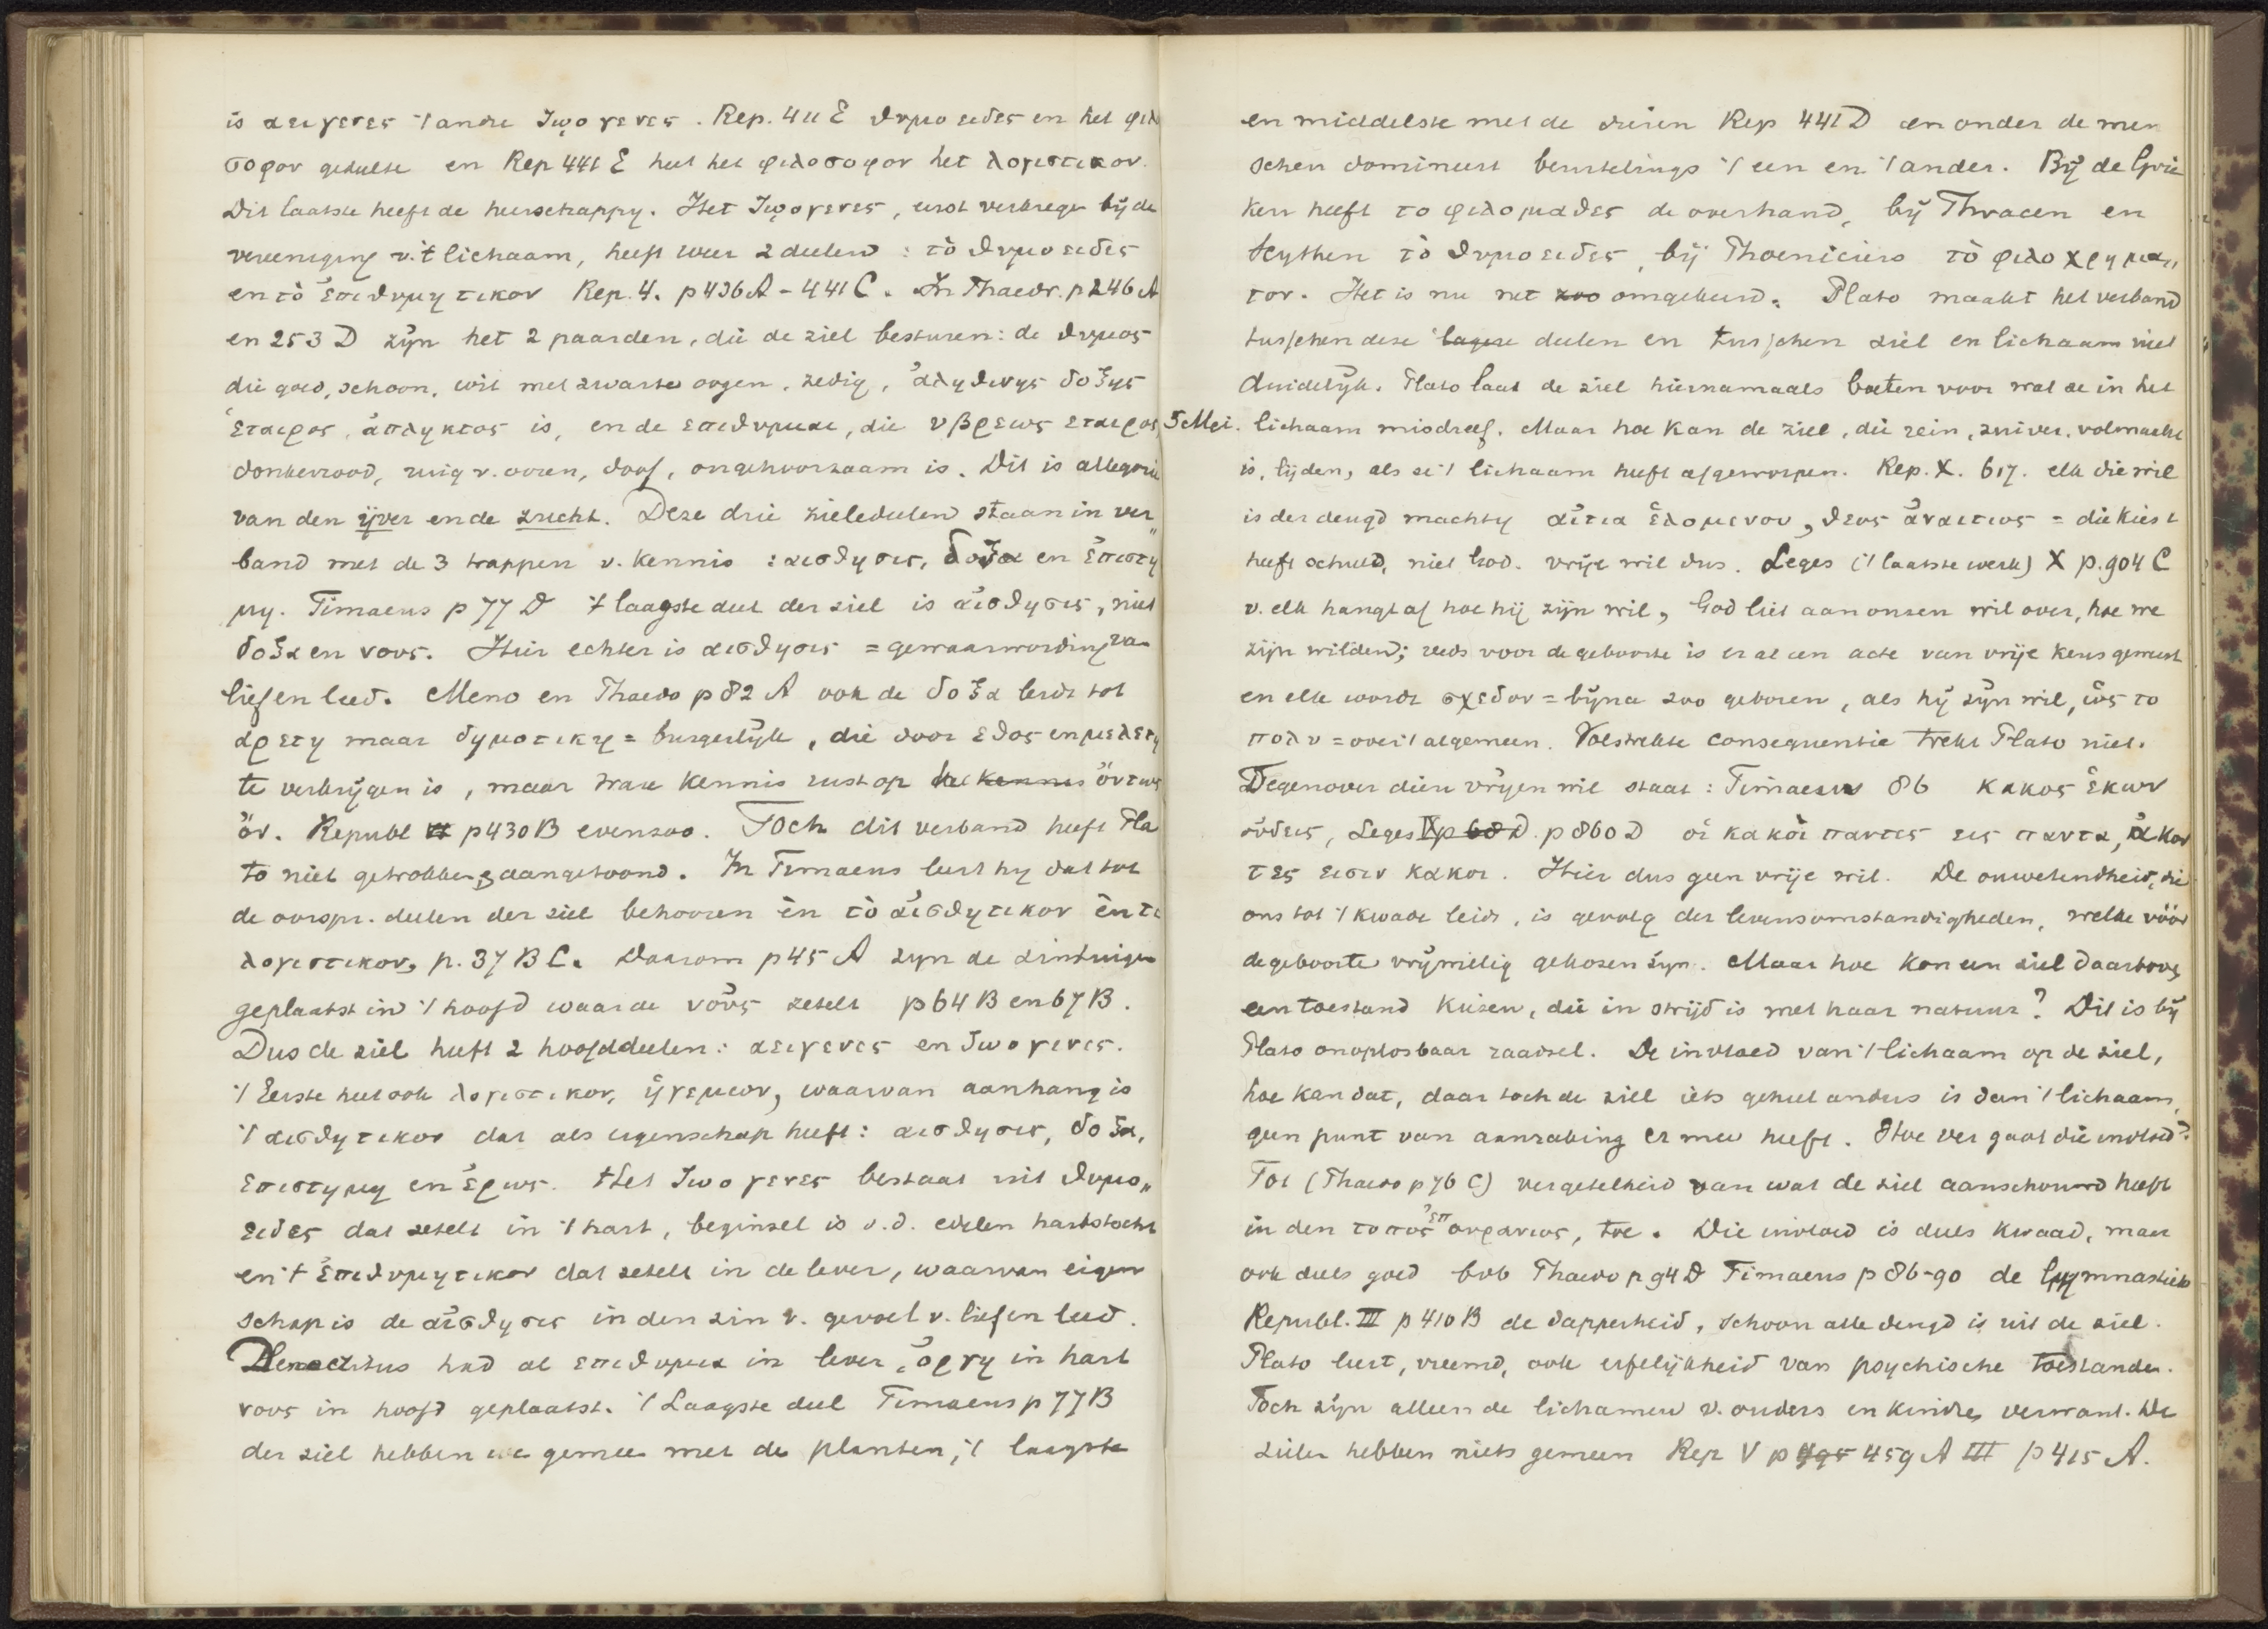 is αειγενες 't andre ζωογενες. Rep. 411 E θυμοειδες en het φιλο
σοφον gedeelte en Rep 441 E heet het φιλοσοφον het λογιστικον.
Dit laatste heeft de heerschappy. Het ζωογενες, eerst verkregen bij de
vereeniging v. 't lichaam, heeft weer 2 deelen : τὸ θυμοειδες
en τὸ ἐπιθυμητικον Rep. 4. p 436 A - 441 C. In Phaedr. p 246 A
en 253 D zijn het 2 paarden, die de ziel besturen: de θυμος
die goed, schoon, wit met zwarte oogen, zedig, ἀληθινης δοξης
ἑταιρος, ἀπληκτος is, en de επιθυμιαι, die υβρεως εταιρος,
donkerrood, ruig v. ooren, doof, ongehoorzaam is. Dit is allegorie
van den ijver en de zucht. Deze drie zieledeelen staan in ver„
band met de 3 trappen v. kennis : αισθησις, δοξα en ἐπιστη
μη. Timaeus p 77 D 't laagste deel der ziel is αἰσθησις, niet
δοξα en νους. Hier echter is αισθησις = gewaarwording van
lief en leed. Meno en Phaedo p 82 A ook de δοξα leidt tot
αρετη maar δημοτικη = burgerlijk, die door εθος en μελετη
te verkrijgen is, maar ware kennis rust op het kennis ὄντως
ὄν. Republ p 430 B evenzoo. Toch dit verband heeft Pla
to niet getrokken, aangetoond. In Timaeus leert hy dat tot
de oorspr. deelen der ziel behooren èn τὸ αἰσθητικον èn το
λογιστικον, p. 37 B C. Daarom p 45 A zyn de zintuigen
geplaatst in 't hoofd waar de νοῦς zetelt p 64 B en 67 B.
Dus de ziel heeft 2 hoofddeelen: αειγενες en ζωογενες.
't Eerste heet ook λογιστικον, ἡγεμων, waarvan aanhang is
't αισθητικον dat als eigenschap heeft: αισθησις, δοξα,
επιστημη en ἔρως. Het ζωογενες bestaat uit θυμο„
ειδες dat zetelt in 't hart, beginsel is v. d. edelen hartstocht
en 't ἐπιθυμητικον dat zetelt in de lever, waarvan eigen
schap is de αἰσθησις in den zin v. gevoel v. lief en leed.
Democritus had al επιθυμια in lever, ὀργη in hart
νους in hoofd geplaatst. 't Laagste deel Timaeus p 77 B
der ziel hebben we gemeen met de planten, 't laagste
en middelste met de dieren Rep 441 D en onder de men
schen domineert beurtelings 't een en 't ander. Bij de Grie
ken heeft το φιλομαθες de overhand, bij Thracen en
Scythen τὸ θυμοειδες, bij Phoeniciers τὸ φιλοχρηματ„
τον. Het is nu net zoo omgekeerd. Plato maakt het verband
tusschen deze lagere deelen en tusschen ziel en lichaam niet
duidelijk. Plato laat de ziel hiernamaals boeten voor wat ze in het
5 Mei. lichaam misdreef. Maar hoe kan de ziel, die rein, zuiver, volmaakt
is, lijden, als ze 't lichaam heeft afgeworpen. Rep. X. 617. elk die wil
is der deugd machtig αἰτια ἑλομενου, θεος ἀναιτιος = die kiest
heeft schuld, niet God. vrije wil dus. Leges ('t laatste werk) X p. 904 C
v. elk hangt af hoe hij zijn wil, God liet aan onzen wil over, hoe we
zijn wilden; reeds voor de geboorte is er al een acte van vrije keus geweest
en elk wordt σχεδον = bijna zoo geboren, als hij zijn wil, ὡς το
πολυ = over 't algemeen. Volstrekte consequentie trekt Plato niet.
Tegenover dien vrijen wil staat : Timaeus 86 κακος ἑκων
οὐδεις, Leges IX p 860 D οἱ κακοὶ παντες εις παντα, ἀκον
τες εισιν κακοι. Hier dus geen vrije wil. De onwetendheid, die
ons tot 't kwade leidt, is gevolg der levensomstandigheden, welke vóór
de geboorte vrijwillig gekozen zijn. Maar hoe kon een ziel daartoe
een toestand kiezen, die in strijd is met haar natuur? Dit is bij
Plato onoplosbaar raadsel. De invloed van 't lichaam op de ziel,
hoe kan dat, daar toch de ziel iets geheel anders is dan 't lichaam,
geen punt van aanraking er mee heeft. Hoe ver gaat die invloed?
Tot (Phaedo p 76 C) vergetelheid van wat de ziel aanschouwd heeft
in den τοπος ἐπουρανιος, toe. Die invloed is deels kwaad, maar
ook deels goed bvb Phaedo p 94 D Timaeus p 86-90 de gymnastiek
Republ. III p 410 B de dapperheid, schoon alle deugd is uit de ziel.
Plato leert, vreemd, ook erfelijkheid van psychische toestanden.
Toch zijn alleen de lichamen v. ouders en kinderen verwant. De
zielen hebben niets gemeen Rep V p 495 459 A III p 415 A.